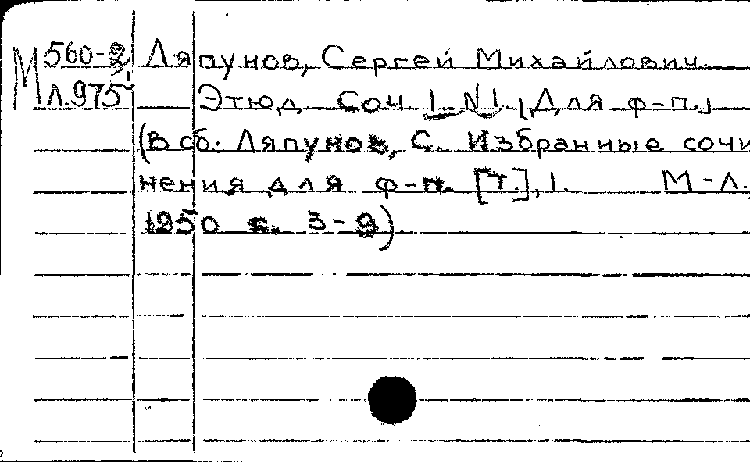 М 560-2 Ляпунов, Сергей Михайлович
Л.975 Этюд Соч 1 N1. [Для ф-п.]
(В сб. Ляпунов, С. Избранные сочи
нения для ф-п. [Т.], 1. М-Л.,
1950 с. 3-9)